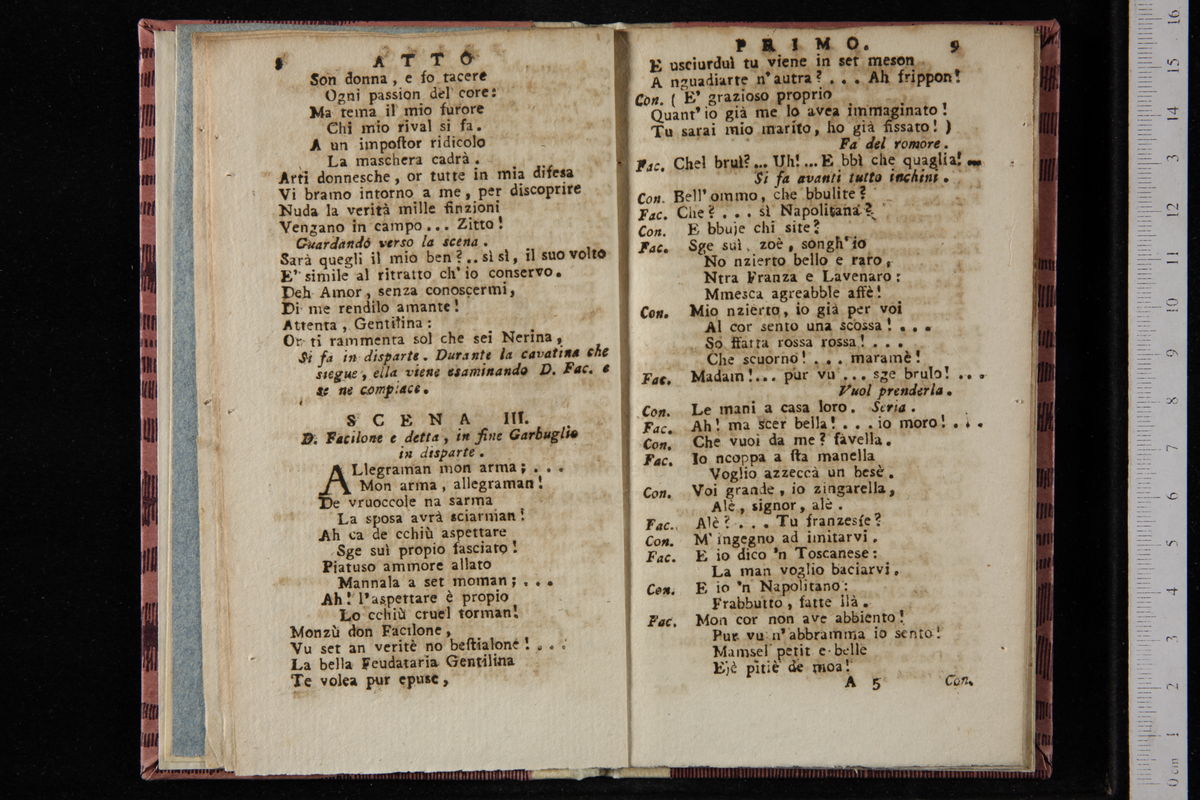 8 ATTO
Son donna, e so tacere
Ogni passion del core:
Ma tema il mio furore
Chi mio rival si fa.
A un impoſtor ridicolo
La maschera cadrà.
Arti donnesche, or tutte in mia difesa
Vi bramo intorno a me, per discoprire
Nuda la verità mille finzioni
Vengano in campo... Zitto!
Guardando verso la scena.
Sarà quegli il mio ben?.. sì sì, il suo volto
E' simile al ritratto ch'io conservo.
Deh Amor, senza conoscermi,
Di me rendilo amante!
Attenta, Gentilina:
Or ti rammenta sol che sei Nerina,
Si fa in disparte. Durante la cavatina che
siegue, ella viene esaminando D. Fac. e
se ne compiace.
SCENA III.
D. Facilone e detta, in fine Garbuglio
in disparte.
ALlegraman mon arma; ...
Mon arma, allegraman!
De vruoccole na sarma
La sposa avrà sciarman!
Ah ca de cchiù aspettare
Sge suì propio fasciato!
Piatuso ammore allato
Mannala a set moman; ...
Ah! l'aspettare è propio
Lo cchiù cruel torman!
Monzù don Facilone,
Vu set an veritè no beſtialone! ...
La bella Feudataria Gentilina
Te volea pur epuse,
PRIMO. 9
E usciurduì tu viene in set meson
A nguadiarte n'autra? ... Ah frippon!
Con. ( E' grazioso proprio
Quant'io già me lo avea immaginato!
Tu sarai mio marito, ho già fissato! )
Fa del romore.
Fac. Chel bruì?... Uh!... E bbì che quaglia!
Si fa avanti tutto inchini.
Con. Bell'ommo, che bbulite?
Fac. Che? ... sì Napolitana?
Con. E bbuje chi site?
Fac. Sge suì, zoè, songh'io
No nzierto bello e raro,
Ntra Franza e Lavenaro:
Mmesca agreabble affè!
Con. Mio nzierto, io già per voi
Al cor sento una scossa! ...
So ffatta rossa rossa! ...
Che scuorno! ... maramè!
Fac. Madam!... pur vu ... sge brulo! ...
Vuol prenderla.
Con. Le mani a casa loro. Seria.
Fac. Ah! ma scer bella! ... io moro! ...
Con. Che vuoi da me? favella.
Fac. Io ncoppa a ſta manella
Voglio azzeccà un besè.
Con. Voi grande, io zingarella,
Alè, signor, alè.
Fac. Alè? ... Tu franzese?
Con. M'ingegno ad imitarvi.
Fac. E io dico 'n Toscanese:
La man voglio baciarvi.
Con. E io 'n Napolitano:
Frabbutto, fatte llà.
Fac. Mon cor non ave abbiento!
Pur vu n'abbramma io sento!
Mamsel petit e belle
Ejè pitiè de moa!
A 5 Con.